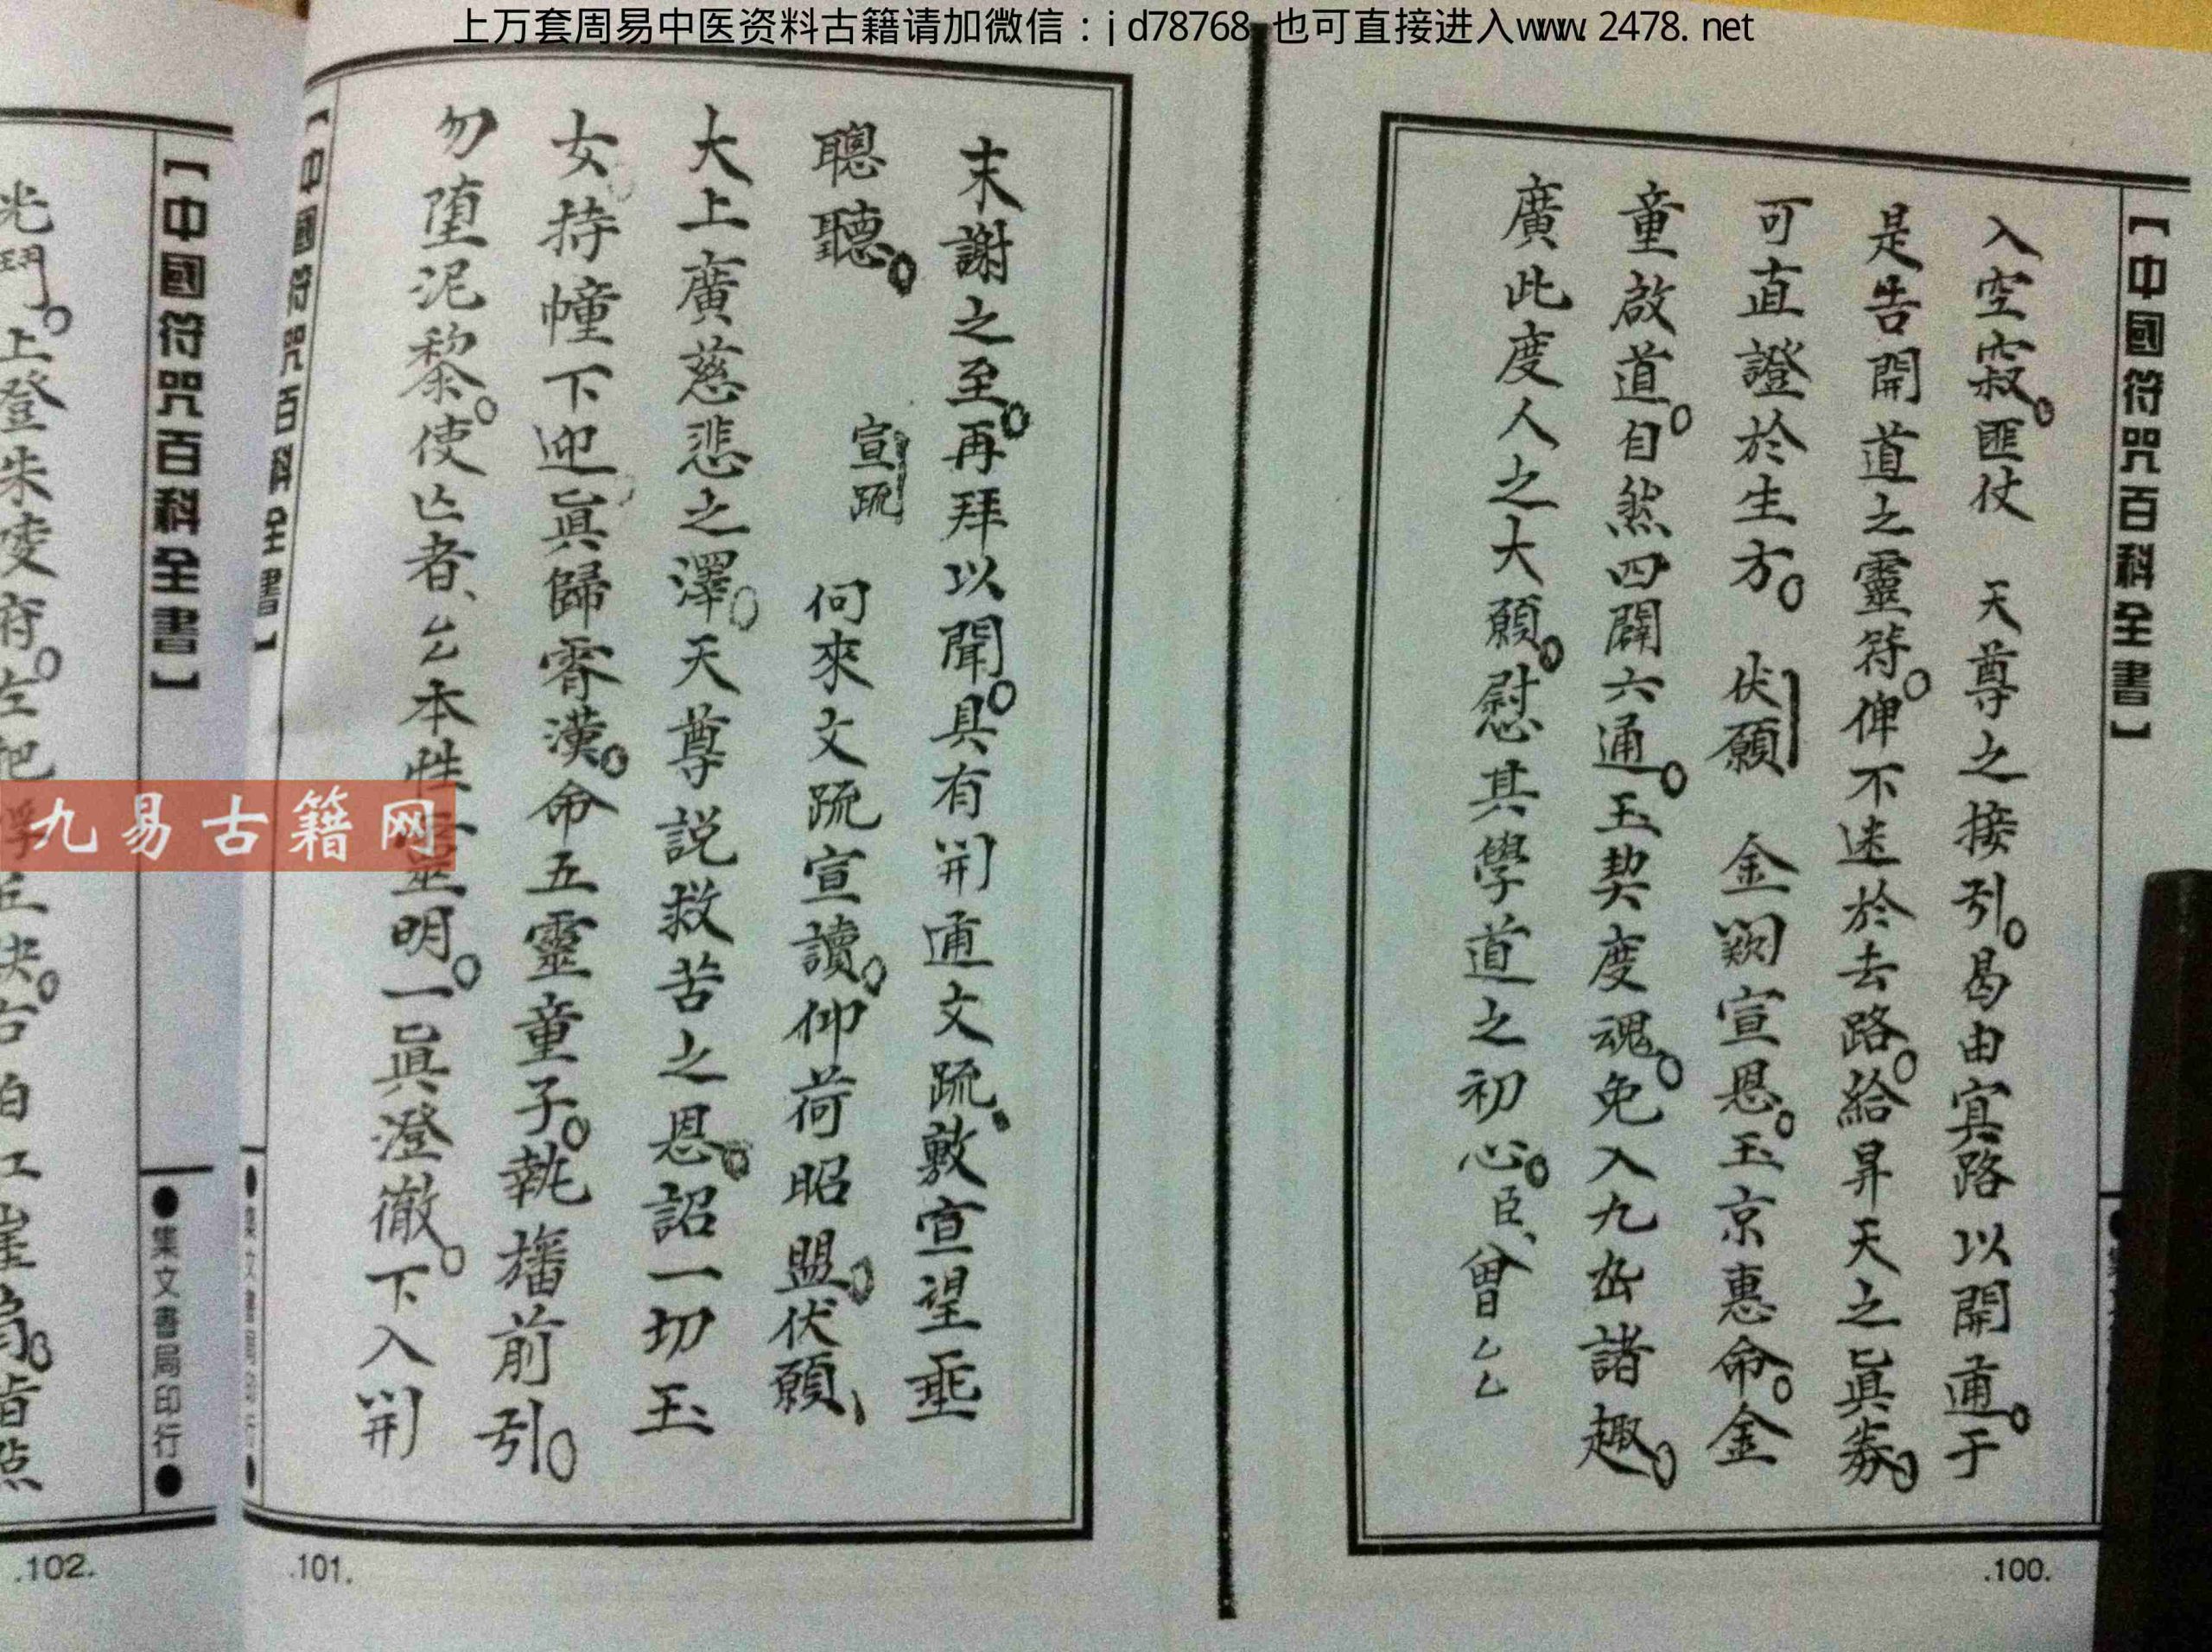 上万套周易中医资料古籍请加微信：jd78768 也可直接进入www.2478.net
【中國符咒百科全書】
入空寂匪仗　天尊之接引曷由冥路以開通于
是告開道之靈符俾不迷於去路給昇天之眞券
可直證於生方　伏願　金闕宣恩玉京惠命金
童啟道自然四闢六通玉契度魂免入九幽諸趣
廣此度人之大願慰其學道之初心臣、曾乙乙
.100.
末謝之至再拜以聞具有開通文疏敷宣望垂
聰聽　宣疏　何來文疏宣讀仰荷昭盟伏願、
大上廣慈悲之澤天尊説救苦之恩詔一切玉
女持幢下迎眞歸霄漢命五靈童子執旛前引
勿堕泥黎使亾者、厶乙本性靈明一眞澄徹下入開
【中國符咒百科全書】
.101.
九易古籍网
【中國符咒百科全書】
●集文書局印行●
上登朱陵府左把
.102.